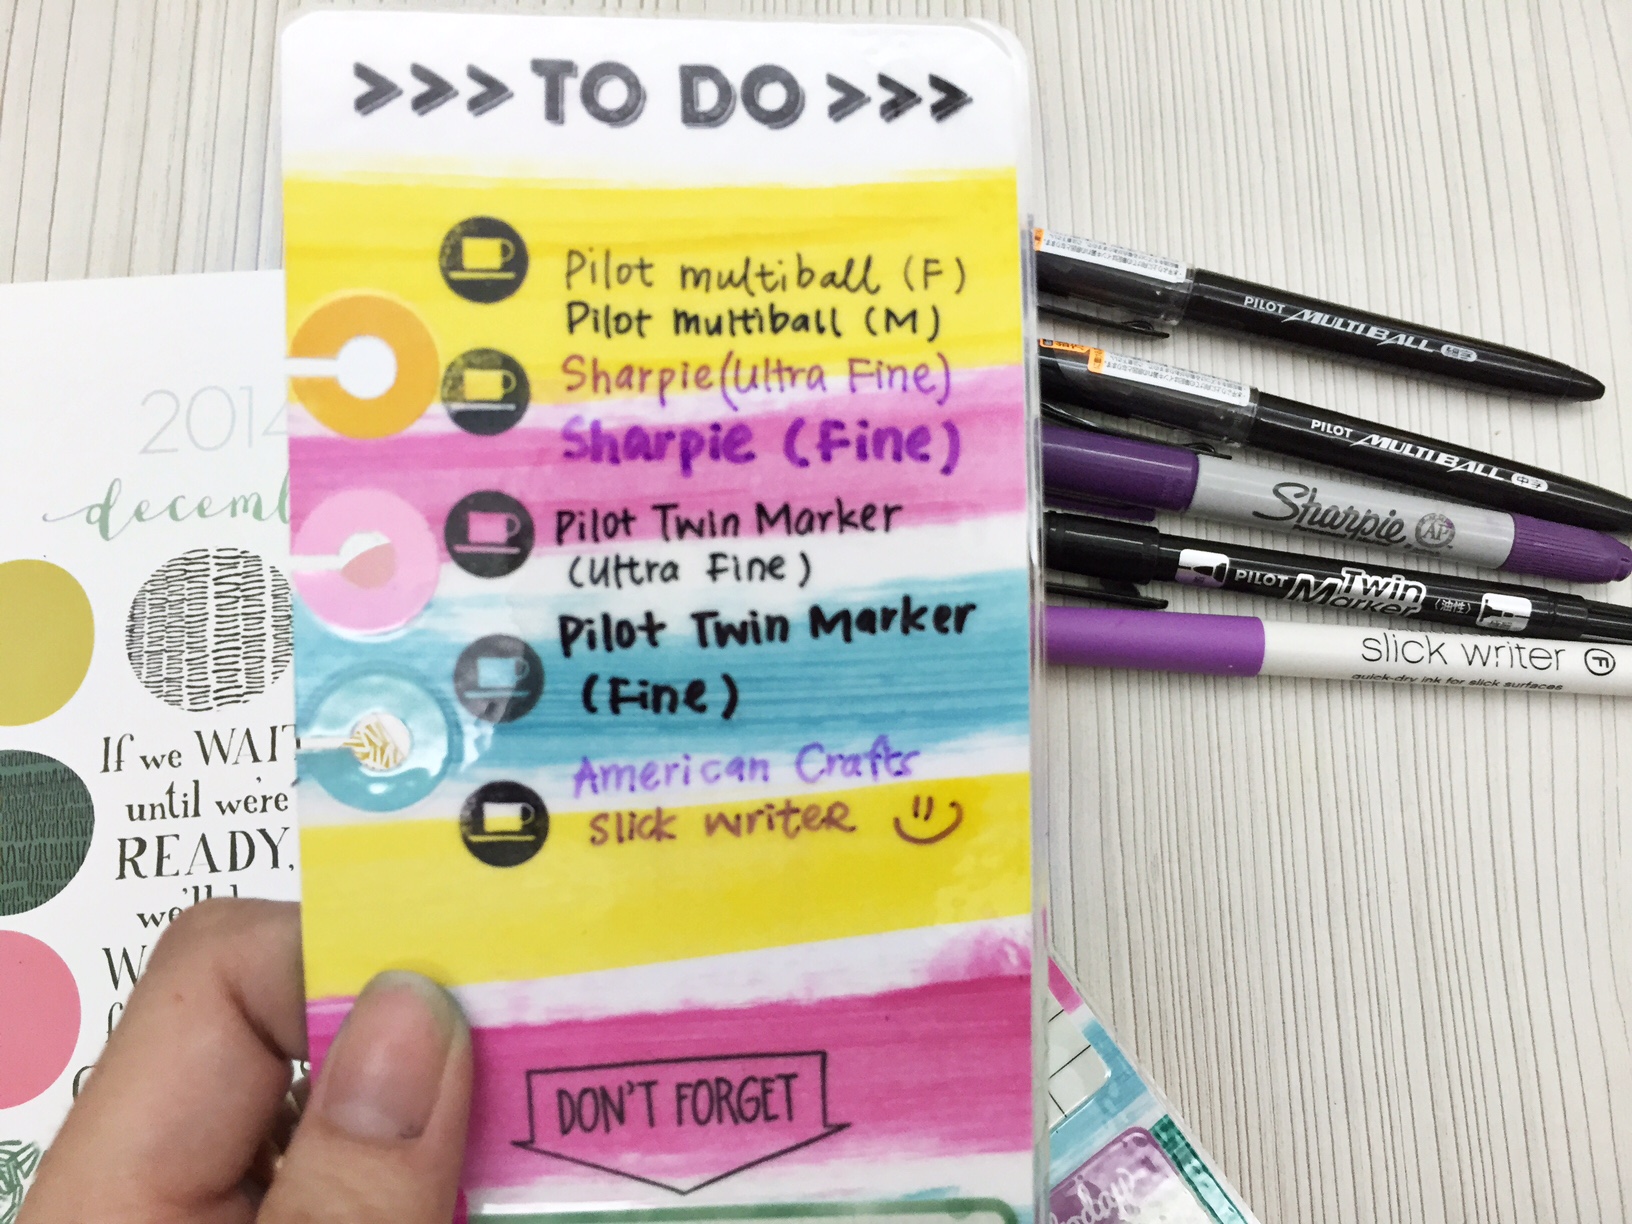 >>> TO DO >>>
Pilot multiball (F)
Pilot multiball (M)
Sharpie (Ultra Fine)
Sharpie (Fine)
Pilot Twin Marker
(Ultra Fine)
Pilot Twin Marker
(Fine)
American Crafts
Slick writer
DON'T FORGET
2014
decem
If we WAIT
until we're
READY,
we'll
PILOT MULTI BALL 細字
PILOT MULTI BALL 中字
Sharpie. AP
PILOT Twin Marker (油性)
slick writer F
quick-dry ink for slick surfaces